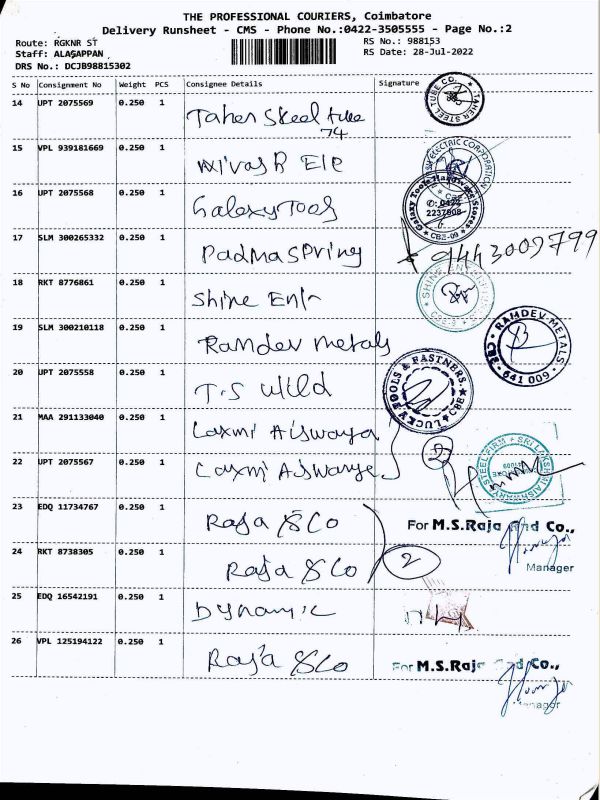 THE PROFESSIONAL COURIERS, Coimbatore
Delivery Runsheet - CMS - Phone No.:0422-3505555 - Page No.:2
Route: RGKNR ST
Staff: ALAGAPPAN
DRS No.: DCJB98815302
RS No.: 988153
RS Date: 28-Jul-2022
S No Consignment No Weight PCS Consignee Details Signature
14 UPT 2075569 0.250 1 Taher Steel tube
74
TAHER STEEL TUBE CO.
15 VPL 939181669 0.250 1 Nivas R Ele
ELECTRIC CORPORATION
16 UPT 2075568 0.250 1 Galaxy Tools
Galaxy Tools Hardware Stores
✆: 0422
2237808
CBE-09
17 SLM 300265332 0.250 1 Padma Spring 9443009799
18 RKT 8776861 0.250 1 Shine Entr
SHINE ENTERPRISES
19 SLM 300210118 0.250 1 Ramdev metals
RAMDEV METALS
CBE - 641 009
20 UPT 2075558 0.250 1 T.S Wild
LUCKY TOOLS & FASTNERS
CBE
21 MAA 291133040 0.250 1 Laxmi Aiswarya
2
22 UPT 2075567 0.250 1 Laxmi Aiswarya
STEEL FIRM SRI LAKSHMI AISHWARY
23 EDQ 11734767 0.250 1 Raja & Co
For M.S.Raja And Co.,
Manager
24 RKT 8738305 0.250 1 Raja & Co 2
25 EDQ 16542191 0.250 1 Dynamic
26 VPL 125194122 0.250 1 Raja & Co
For M.S.Raja And Co.,
Manager